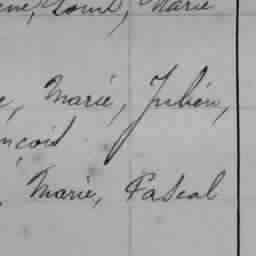 Louis, Marie
Marie, Julien,
nçois
Marie, Pascal